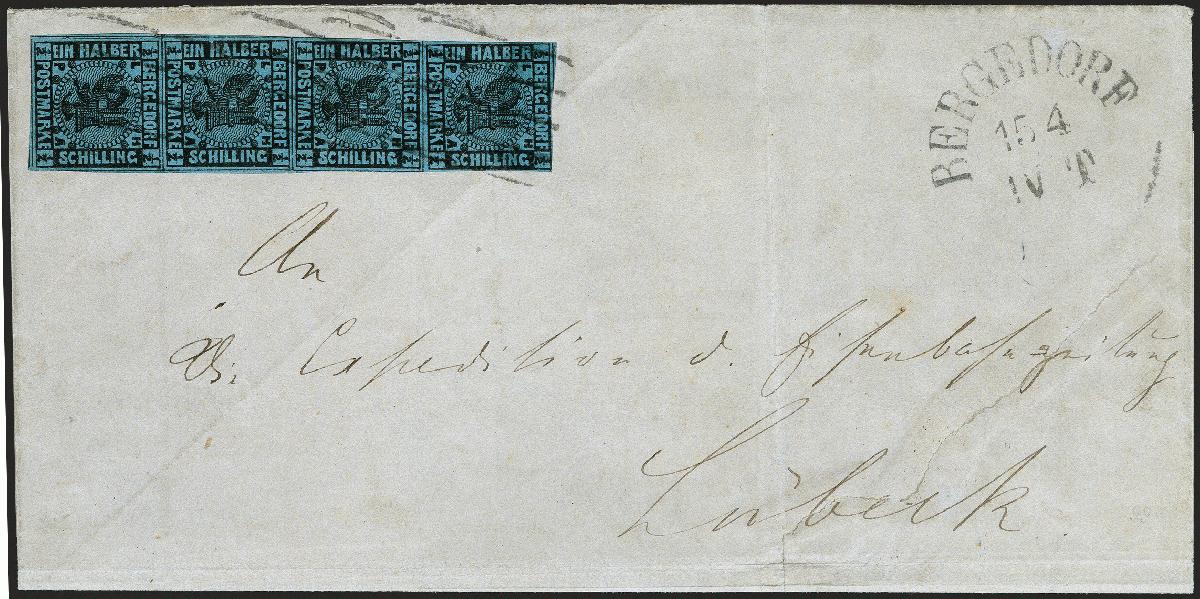 EIN HALBER EIN HALBER EIN HALBER EIN HALBER
POSTMARKE BERGEDORF POSTMARKE BERGEDORF POSTMARKE BERGEDORF POSTMARKE BERGEDORF
L P A H L P A H L P A H L P A H
SCHILLING SCHILLING SCHILLING SCHILLING
BERGEDORF
15 4
N T
An
Die Expedition d. Eisenbahnzeitung
Lübeck